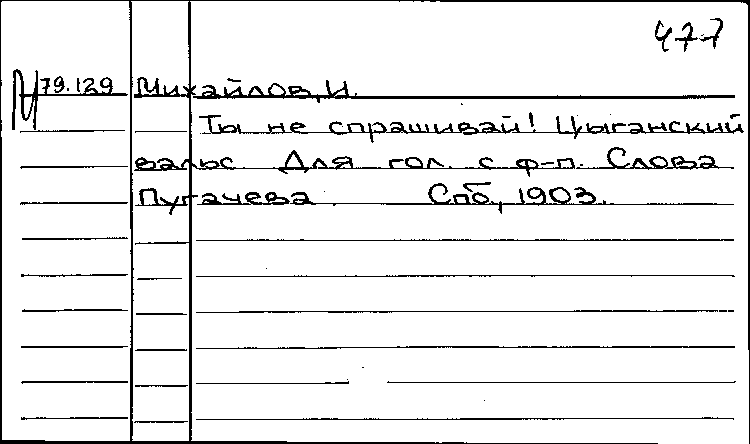 477
79.129 Михайлов, И.
Ты не спрашивай! Цыганский
вальс. Для гол. с ф-п. Слова
Пугачева. Спб., 1903.